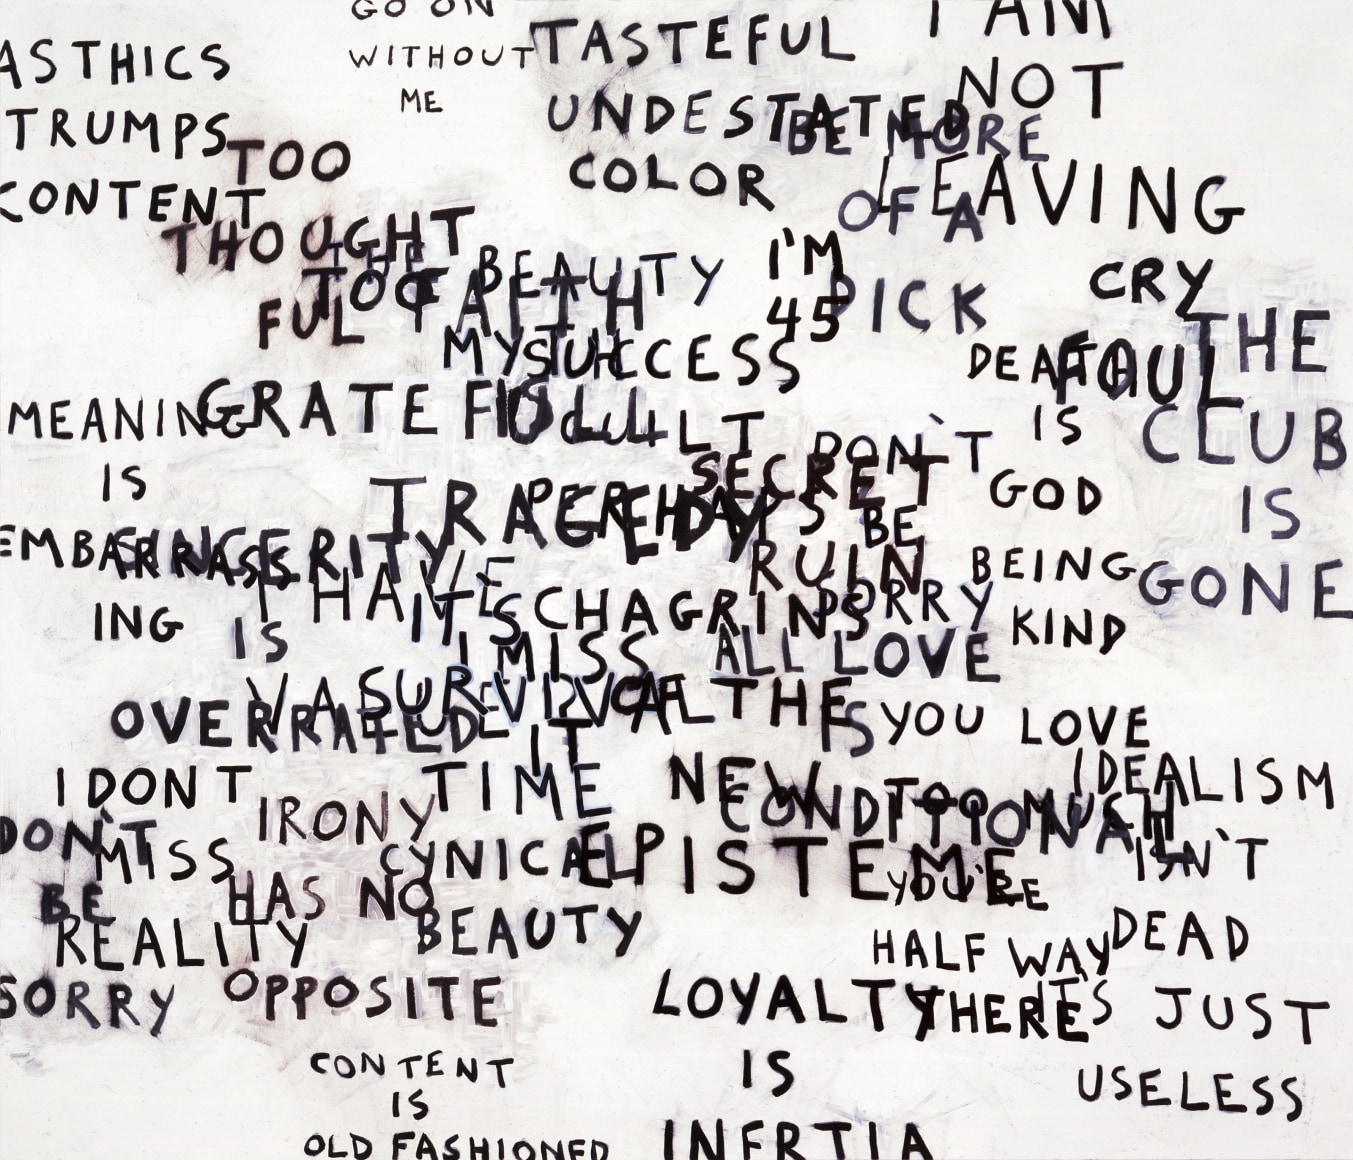 GO ON
WITHOUT
ME
ASTHICS
TRUMPS
CONTENT
TASTEFUL
UNDESTATED
COLOR
I AM
NOT
LEAVING
BE MORE
OF A
DICK
TOO
THOUGHT
FUL
THE BEAUTY
I'M
45
CRY
FOUL
THE
CLUB
IS
GONE
TOO
FAITH
MY
SUCCESS
DEATH
IS
GOD
BEING
KIND
MEANING
IS
EMBARRASS
ING
GRATEFUL
DON'T
BE
SORRY
SECRET
RUIN
TRAGEDY
SINCERITY
IS
OVERRATED
I HAVE
IT'S
CHAGRINS
I MISS
IT
ALL LOVE
IS
CONDITIONAL
SURVIVAL
TIME
THE
NEW
EPISTEME
YOU LOVE
TOO MUCH
YOU'RE
HALF WAY
THERE
IDEALISM
ISN'T
DEAD
IT'S JUST
USELESS
I DONT
MISS
REALITY
IRONY
HAS NO
OPPOSITE
DON'T
BE
SORRY
CYNICAL
BEAUTY
LOYALTY
IS
INERTIA
CONTENT
IS
OLD FASHIONED